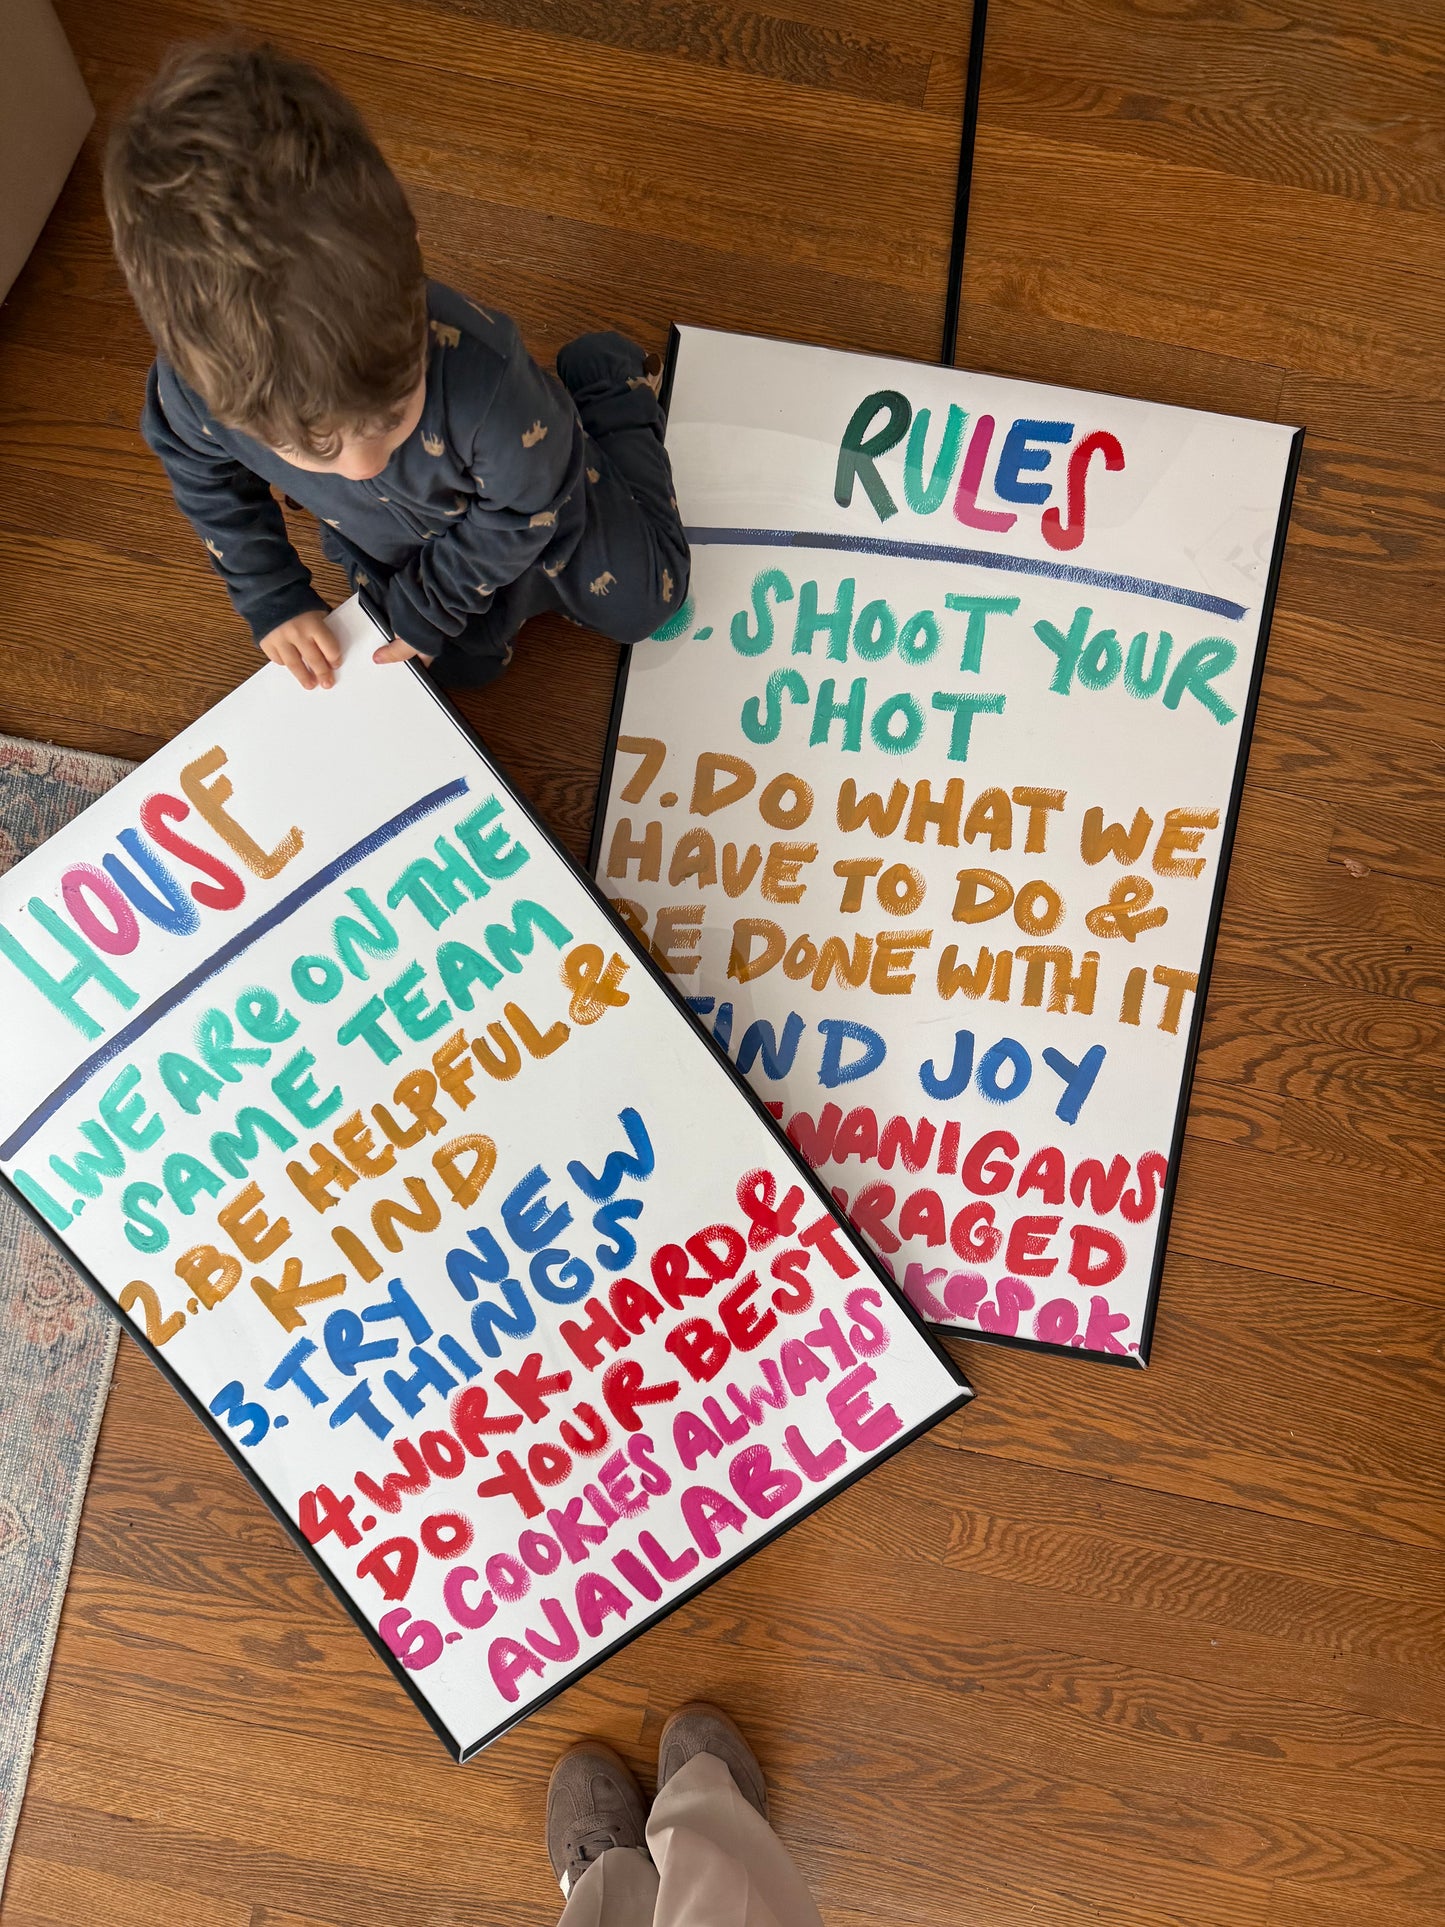 HOUSE
1. WE ARE ON THE
SAME TEAM
2. BE HELPFUL &
KIND
3. TRY NEW
THINGS
4. WORK HARD &
DO YOUR BEST
5. COOKIES ALWAYS
AVAILABLE
RULES
SHOOT YOUR
SHOT
7. DO WHAT WE
HAVE TO DO &
BE DONE WITH IT
FIND JOY
NANIGANS
RAGED
KES O.K.